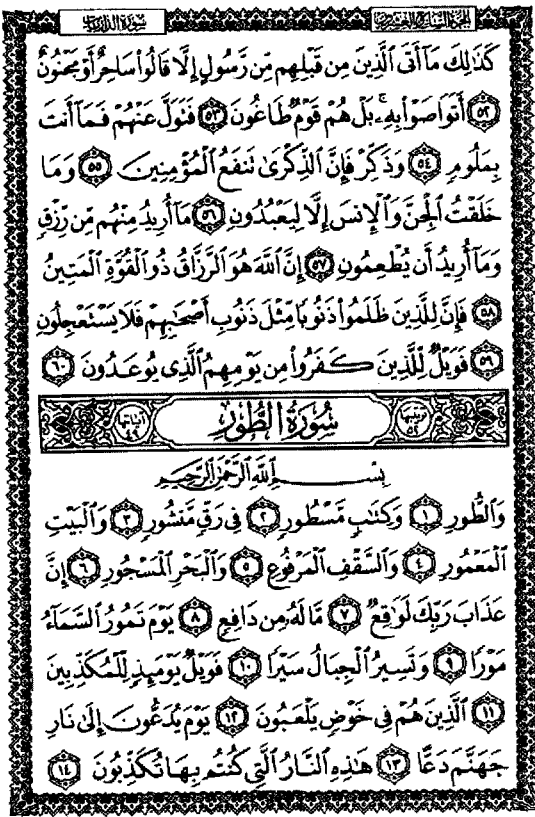 سورة الذاريات
الجزء السابع والعشرون
كَذَٰلِكَ مَآ أَتَى ٱلَّذِينَ مِن قَبْلِهِم مِّن رَّسُولٍ إِلَّا قَالُوا۟ سَاحِرٌ أَوْ مَجْنُونٌ
٥٢ أَتَوَاصَوْا۟ بِهِۦ ۚ بَلْ هُمْ قَوْمٌ طَاغُونَ ٥٣ فَتَوَلَّ عَنْهُمْ فَمَآ أَنتَ
بِمَلُومٍ ٥٤ وَذَكِّرْ فَإِنَّ ٱلذِّكْرَىٰ تَنفَعُ ٱلْمُؤْمِنِينَ ٥٥ وَمَا
خَلَقْتُ ٱلْجِنَّ وَٱلْإِنسَ إِلَّا لِيَعْبُدُونِ ٥٦ مَآ أُرِيدُ مِنْهُم مِّن رِّزْقٍ
وَمَآ أُرِيدُ أَن يُطْعِمُونِ ٥٧ إِنَّ ٱللَّهَ هُوَ ٱلرَّزَّاقُ ذُو ٱلْقُوَّةِ ٱلْمَتِينُ
٥٨ فَإِنَّ لِلَّذِينَ ظَلَمُوا۟ ذَنُوبًا مِّثْلَ ذَنُوبِ أَصْحَٰبِهِمْ فَلَا يَسْتَعْجِلُونِ
٥٩ فَوَيْلٌ لِّلَّذِينَ كَفَرُوا۟ مِن يَوْمِهِمُ ٱلَّذِى يُوعَدُونَ ٦٠
ترتيبها ٥٢ سُورَةُ الطُّورِ آياتها ٤٩
بِسْمِ ٱللَّهِ ٱلرَّحْمَٰنِ ٱلرَّحِيمِ
وَٱلطُّورِ ١ وَكِتَٰبٍ مَّسْطُورٍ ٢ فِى رَقٍّ مَّنشُورٍ ٣ وَٱلْبَيْتِ
ٱلْمَعْمُورِ ٤ وَٱلسَّقْفِ ٱلْمَرْفُوعِ ٥ وَٱلْبَحْرِ ٱلْمَسْجُورِ ٦ إِنَّ
عَذَابَ رَبِّكَ لَوَٰقِعٌ ٧ مَّا لَهُۥ مِن دَافِعٍ ٨ يَوْمَ تَمُورُ ٱلسَّمَآءُ
مَوْرًا ٩ وَتَسِيرُ ٱلْجِبَالُ سَيْرًا ١٠ فَوَيْلٌ يَوْمَئِذٍ لِّلْمُكَذِّبِينَ
١١ ٱلَّذِينَ هُمْ فِى خَوْضٍ يَلْعَبُونَ ١٢ يَوْمَ يُدَعُّونَ إِلَىٰ نَارِ
جَهَنَّمَ دَعًّا ١٣ هَٰذِهِ ٱلنَّارُ ٱلَّتِى كُنتُم بِهَا تُكَذِّبُونَ ١٤